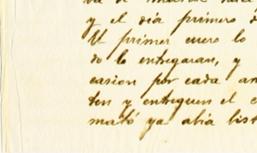 y el dia primero d
El primer enero lo
do lo entregaran, y
casion por cada an
ten y entreguen el c
mató ya abia list